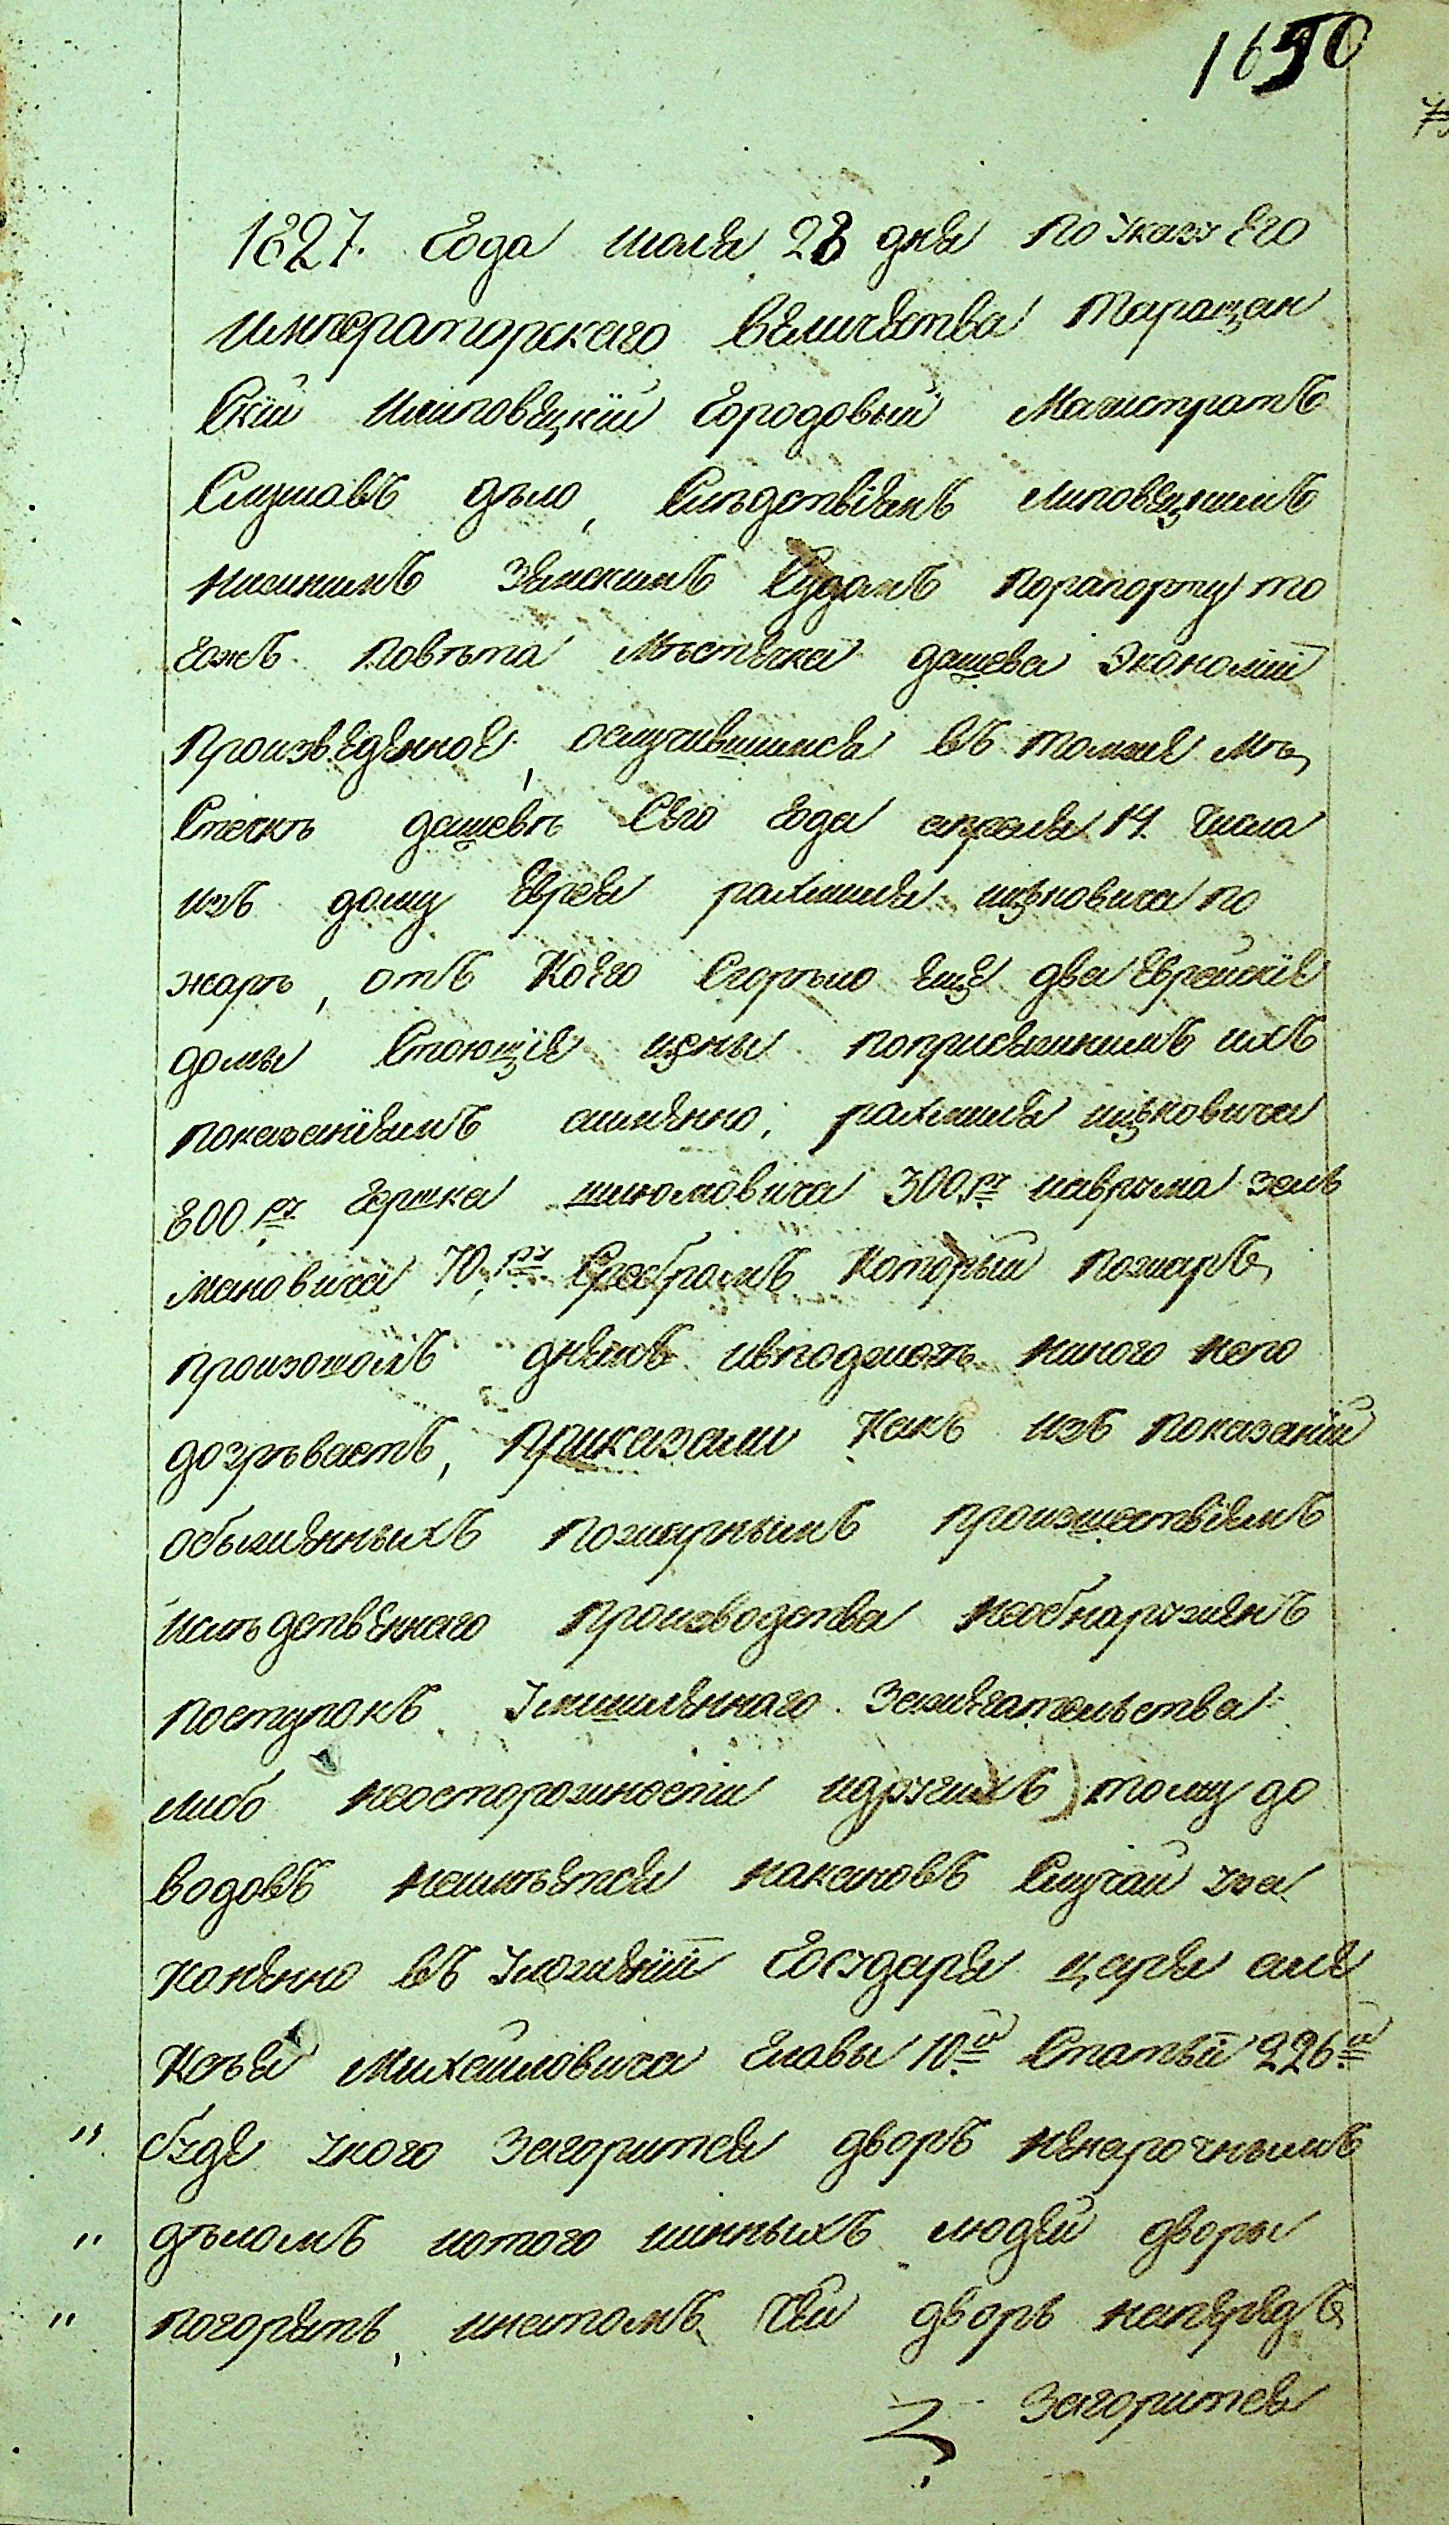 1650
1827. Года июля 28 дня по указу Его
императорскаго величества таращан
Ский илиповецкий Городовый Магистратъ
Слушавъ дѣло, Слѣдствіемъ липовецкимъ
нижнимъ Земскимъ Судомъ порапорту то
гожъ повѣта Мѣстечка дашева Экономіи
произведенное, ослучившимся въ томже Мѣ
Стечкѣ дашевѣ Сего Года апреля 14. числа
изъ дому Еврея рахмиля ицковича по
жарѣ, отъ Коего Сгорѣло еще два Еврейскіе
домы Стоющіе цены поприсяжнимъ ихъ
показаніямъ аименно; рахмиля ицковича
800 ру Гершка шлюмовича 300 ру иаврума зель
мановича 70 ру Сребромъ Который пожаръ
произошолъ днемъ ивподжогѣ никого непо
дозрѣваетъ, Приказали Какъ изъ показаній
обытиенныхъ пожарнымъ произшествіемъ
ислѣдственнаго производства необнаруженъ
поступокъ Умышленнаго Зажигательства
либо неосторожности идругихъ) тому до
водовъ неимѣется накаковъ Случай уза
конено въ Уложеніи Государя царя але
Ксѣя Михайловича Главы 10й Статьи 226й
" буде укого Загорится дворъ ненарочнымъ
" дѣломъ иотого иинныхъ людей дворы
" погорятъ, инатомъ Чей дворъ напередъ
Загорится